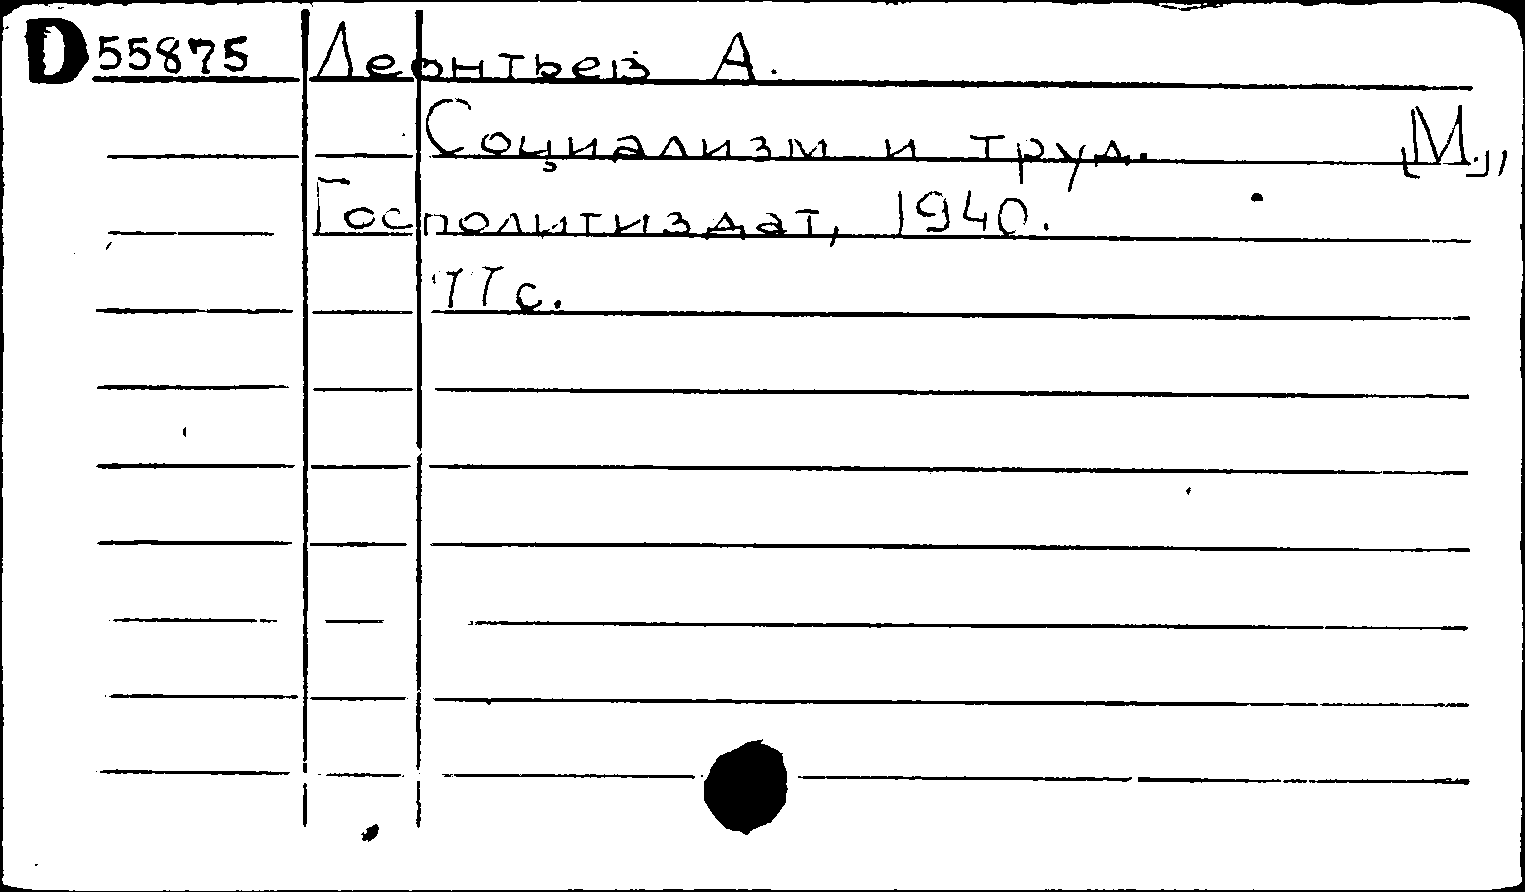 D 55875 Леонтьев А.
Социализм и труд. [М.],
Госполитиздат, 1940.
77 с.